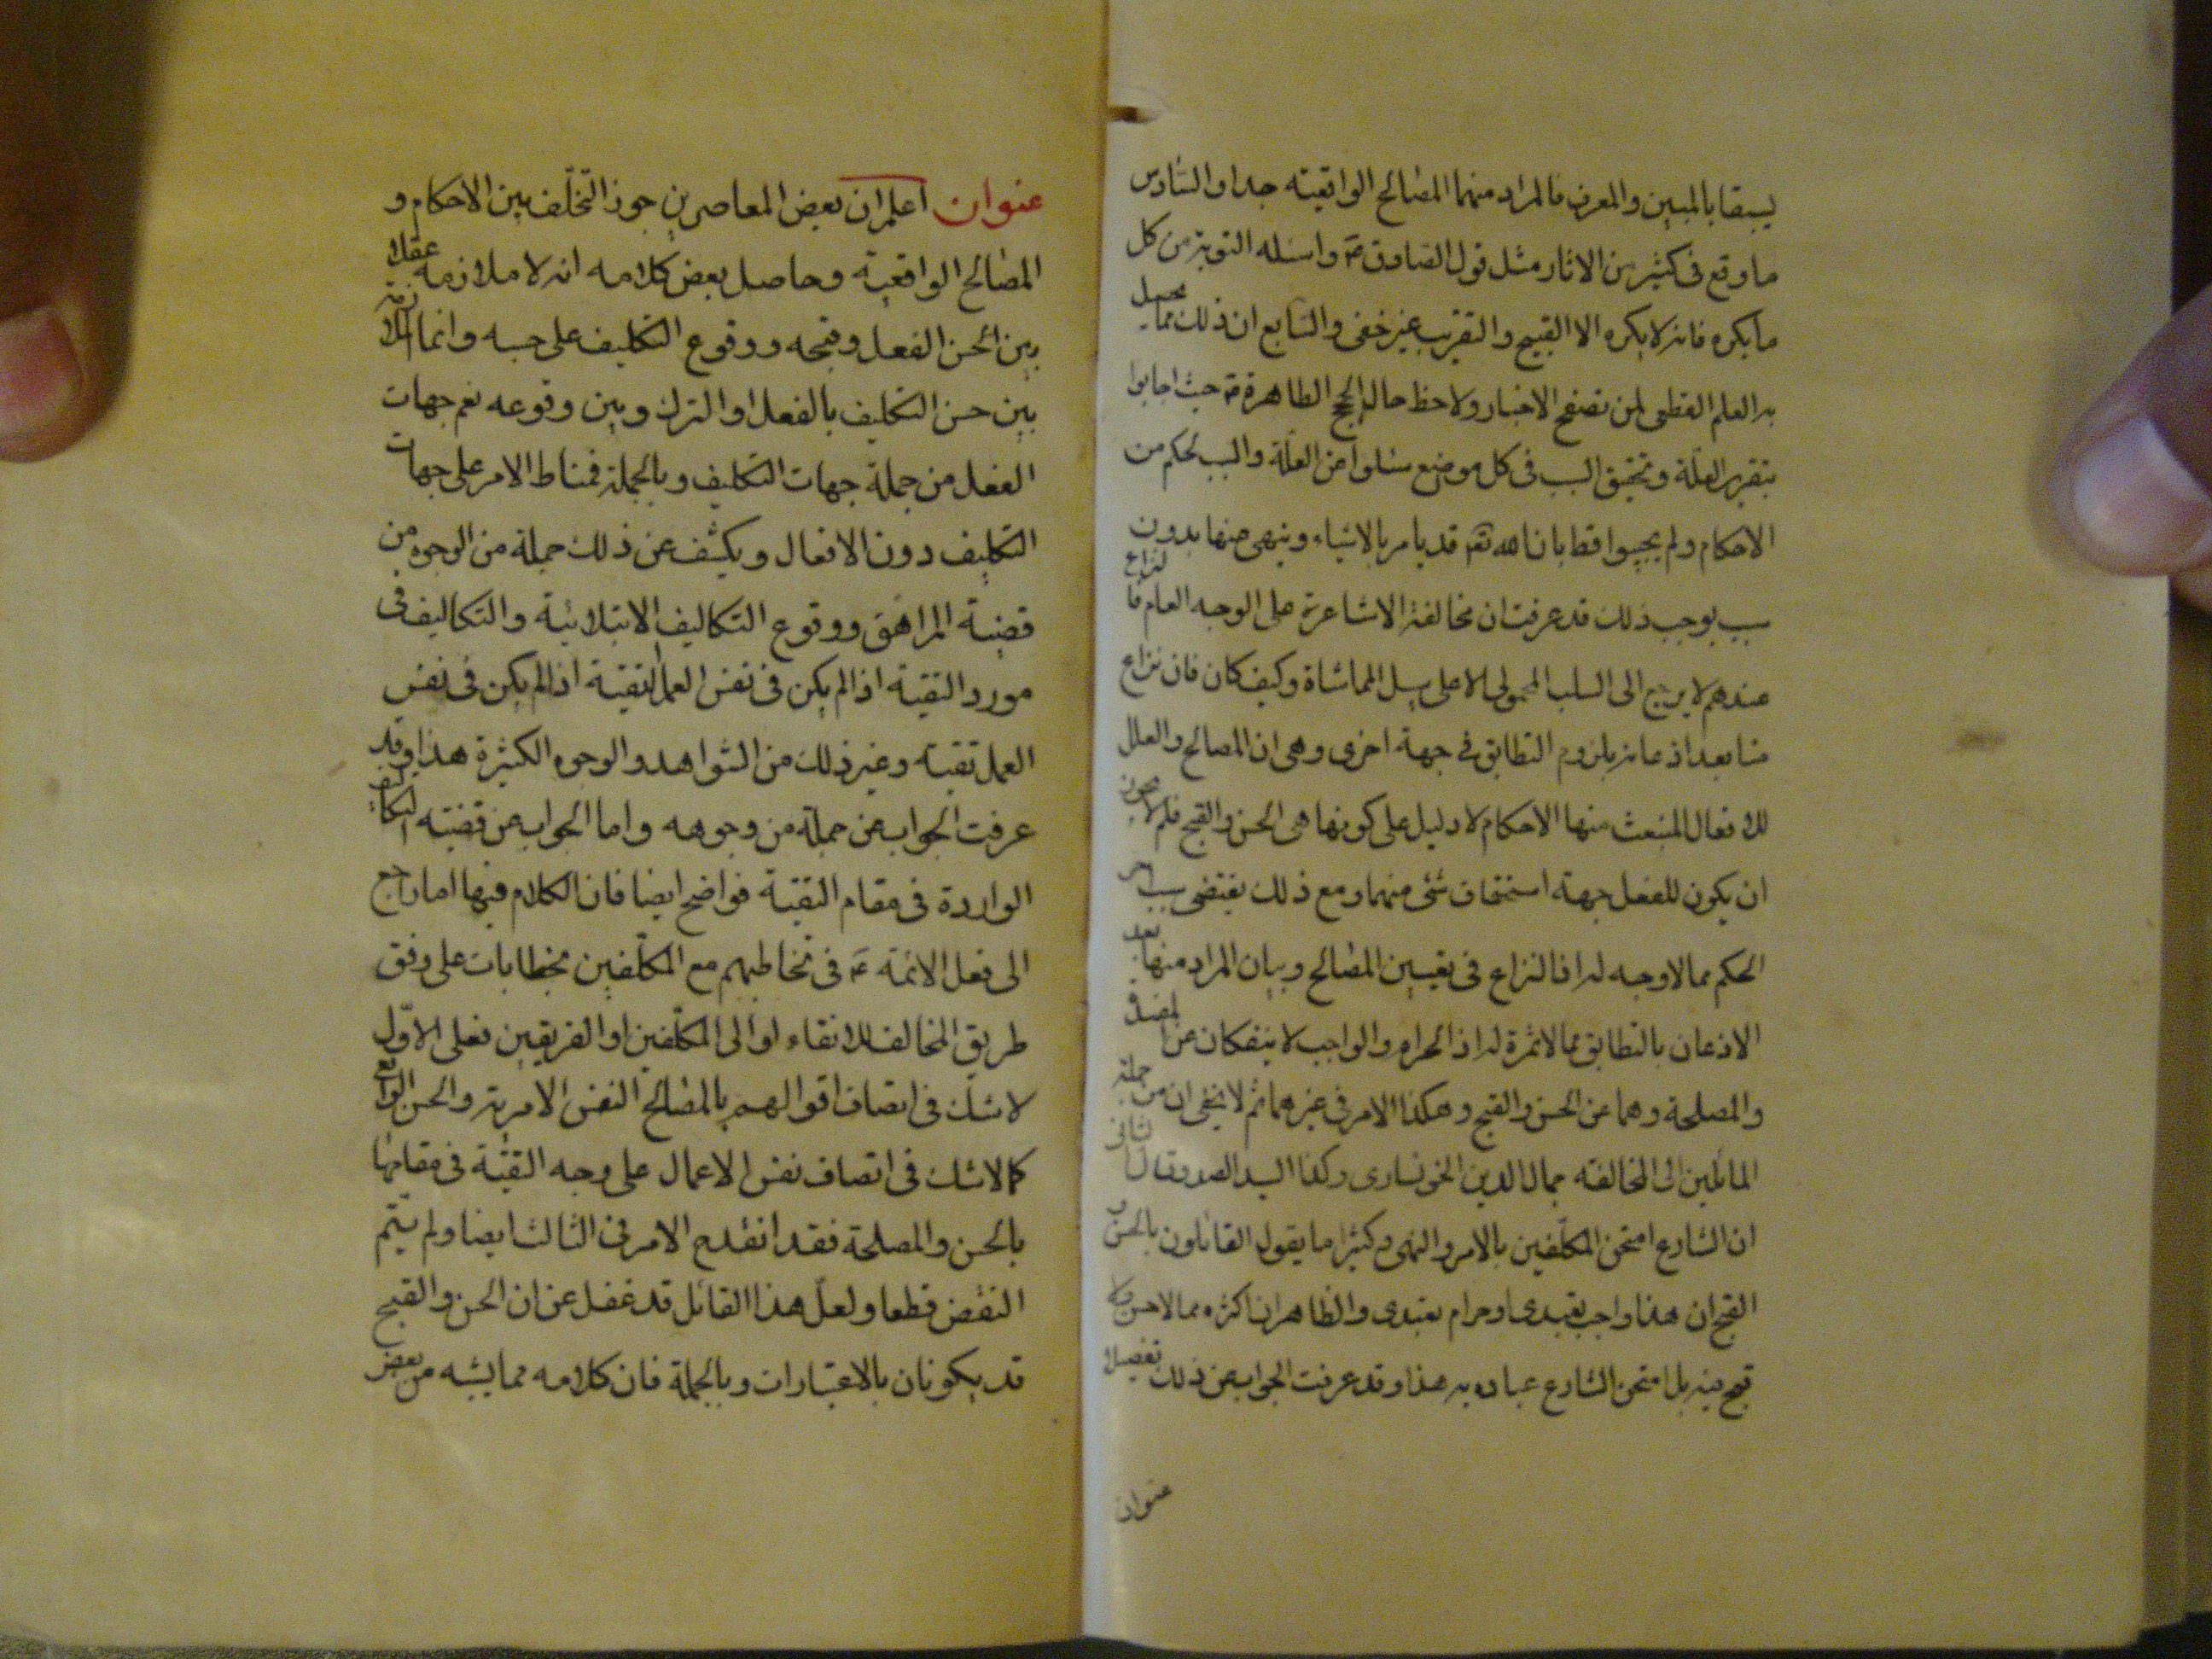 يسبقا بالمبين والمعرف فالمراد منهما المصالح الواقعية جدا والسادس
ما وقع فى كثير من الاثار مثل قول الصادق ع واسئله التوبة من كل
ما يكره فانه لا يكره الا القبيح والتقريب غير خفى والسابع ان ذلك مما يحصل
به العلم القطعى لمن تصفح الاخبار ولاحظ حال الحجج الطاهرة ع حيث اجابوا
بتقرير العلة وتحقيق السبب فى كل موضع سئلوا عن العلة والسبب لحكم من
الاحكام ولم يجيبوا قط بان الله تعم قد يامر بالاشياء وينهى عنها بدون
سبب يوجب ذلك قد عرفت ان مخالفة الاشاعرة على الوجه العام فالنزاع
عندهم لا يرجع الى السلب المحمولى الا على سبيل المماشاة وكيف كان فان نزاع
منا بعد اذعانه بلزوم التطابق فى جهة اخرى وهى ان المصالح والعلل
للافعال المنبعث منها الاحكام لا دليل على كونها هى الحسن والقبح فلم لا يجوز
ان يكون للفعل جهة استحقاق شئ منهما ومع ذلك يقتضى سبب اخر
الحكم مما لا وجه له اذ النزاع فى تعيين المصالح وبيان المراد منها بعد
الاذعان بالتطابق مما لا ثمرة له اذ الحرام والواجب لا ينفكان عن المفسدة
والمصلحة وهما عن الحسن والقبح وهكذا الامر فى غيرهما ثم لا يخفى ان من جملة
المائلين الى المخالفة جمال الدين الخونسارى وكذا السيد الصدر وقال الثانى
ان الشارع امتحن المكلفين بالامر والنهى وكثيرا ما يقول القائلون بالحسن و
القبح ان هذا واجب تعبدى او حرام تعبدى والظاهر ان اكثره مما لا حسن ولا
قبح فيه بل امتحن الشارع عباده به هذا وقد عرفت الجواب عن ذلك تفصيلا
عنوان
عنوان اعلم ان بعض المعاصرين جوز التخلّف بين الاحكام و
المصالح الواقعية وحاصل بعض كلامه انه لا ملازمة عقلا
بين الحسن الفعل وقبحه ووقوع التكليف على حسبه وانما الملازمة
بين حسن التكليف بالفعل او الترك وبين وقوعه نعم جهات
الفعل من جملة جهات التكليف وبالجملة فمناط الامر على جهات
التكليف دون الافعال ويكشف عن ذلك جملة من الوجوه من
قضية المراهق ووقوع التكاليف الابتلائية والتكاليف فى
مورد التقية اذا لم يكن فى نفس العمل تقية اذا لم يكن فى نفس
العمل تقية وغير ذلك من الشواهد والوجوه الكثيرة هذا وقد
عرفت الجواب عن جملة من وجوهه واما الجواب عن قضية التكاليف
الواردة فى مقام التقية فواضح ايضا فان الكلام فيها اما راجع
الى فعل الائمة ع فى تخاطبهم مع المكلّفين بخطابات على وفق
طريق المخالف للاتقاء او الى المكلّفين او الفريقين فعلى الاوّل
لا شك فى اتصاف اقوالهم بالمصالح النفس الامرية والحسن الواقع
كما لا شك فى اتصاف نفس الاعمال على وجه التقيّة فى مقامها
بالحسن والمصلحة فقد انقدح الامر فى الثالث ايضا ولم يتّم
النقض قطعا ولعلّ هذا القائل قد غفل عن ان الحسن والقبح
قد يكونان بالاعتبارات وبالجملة فان كلامه مما يشبه من بعض